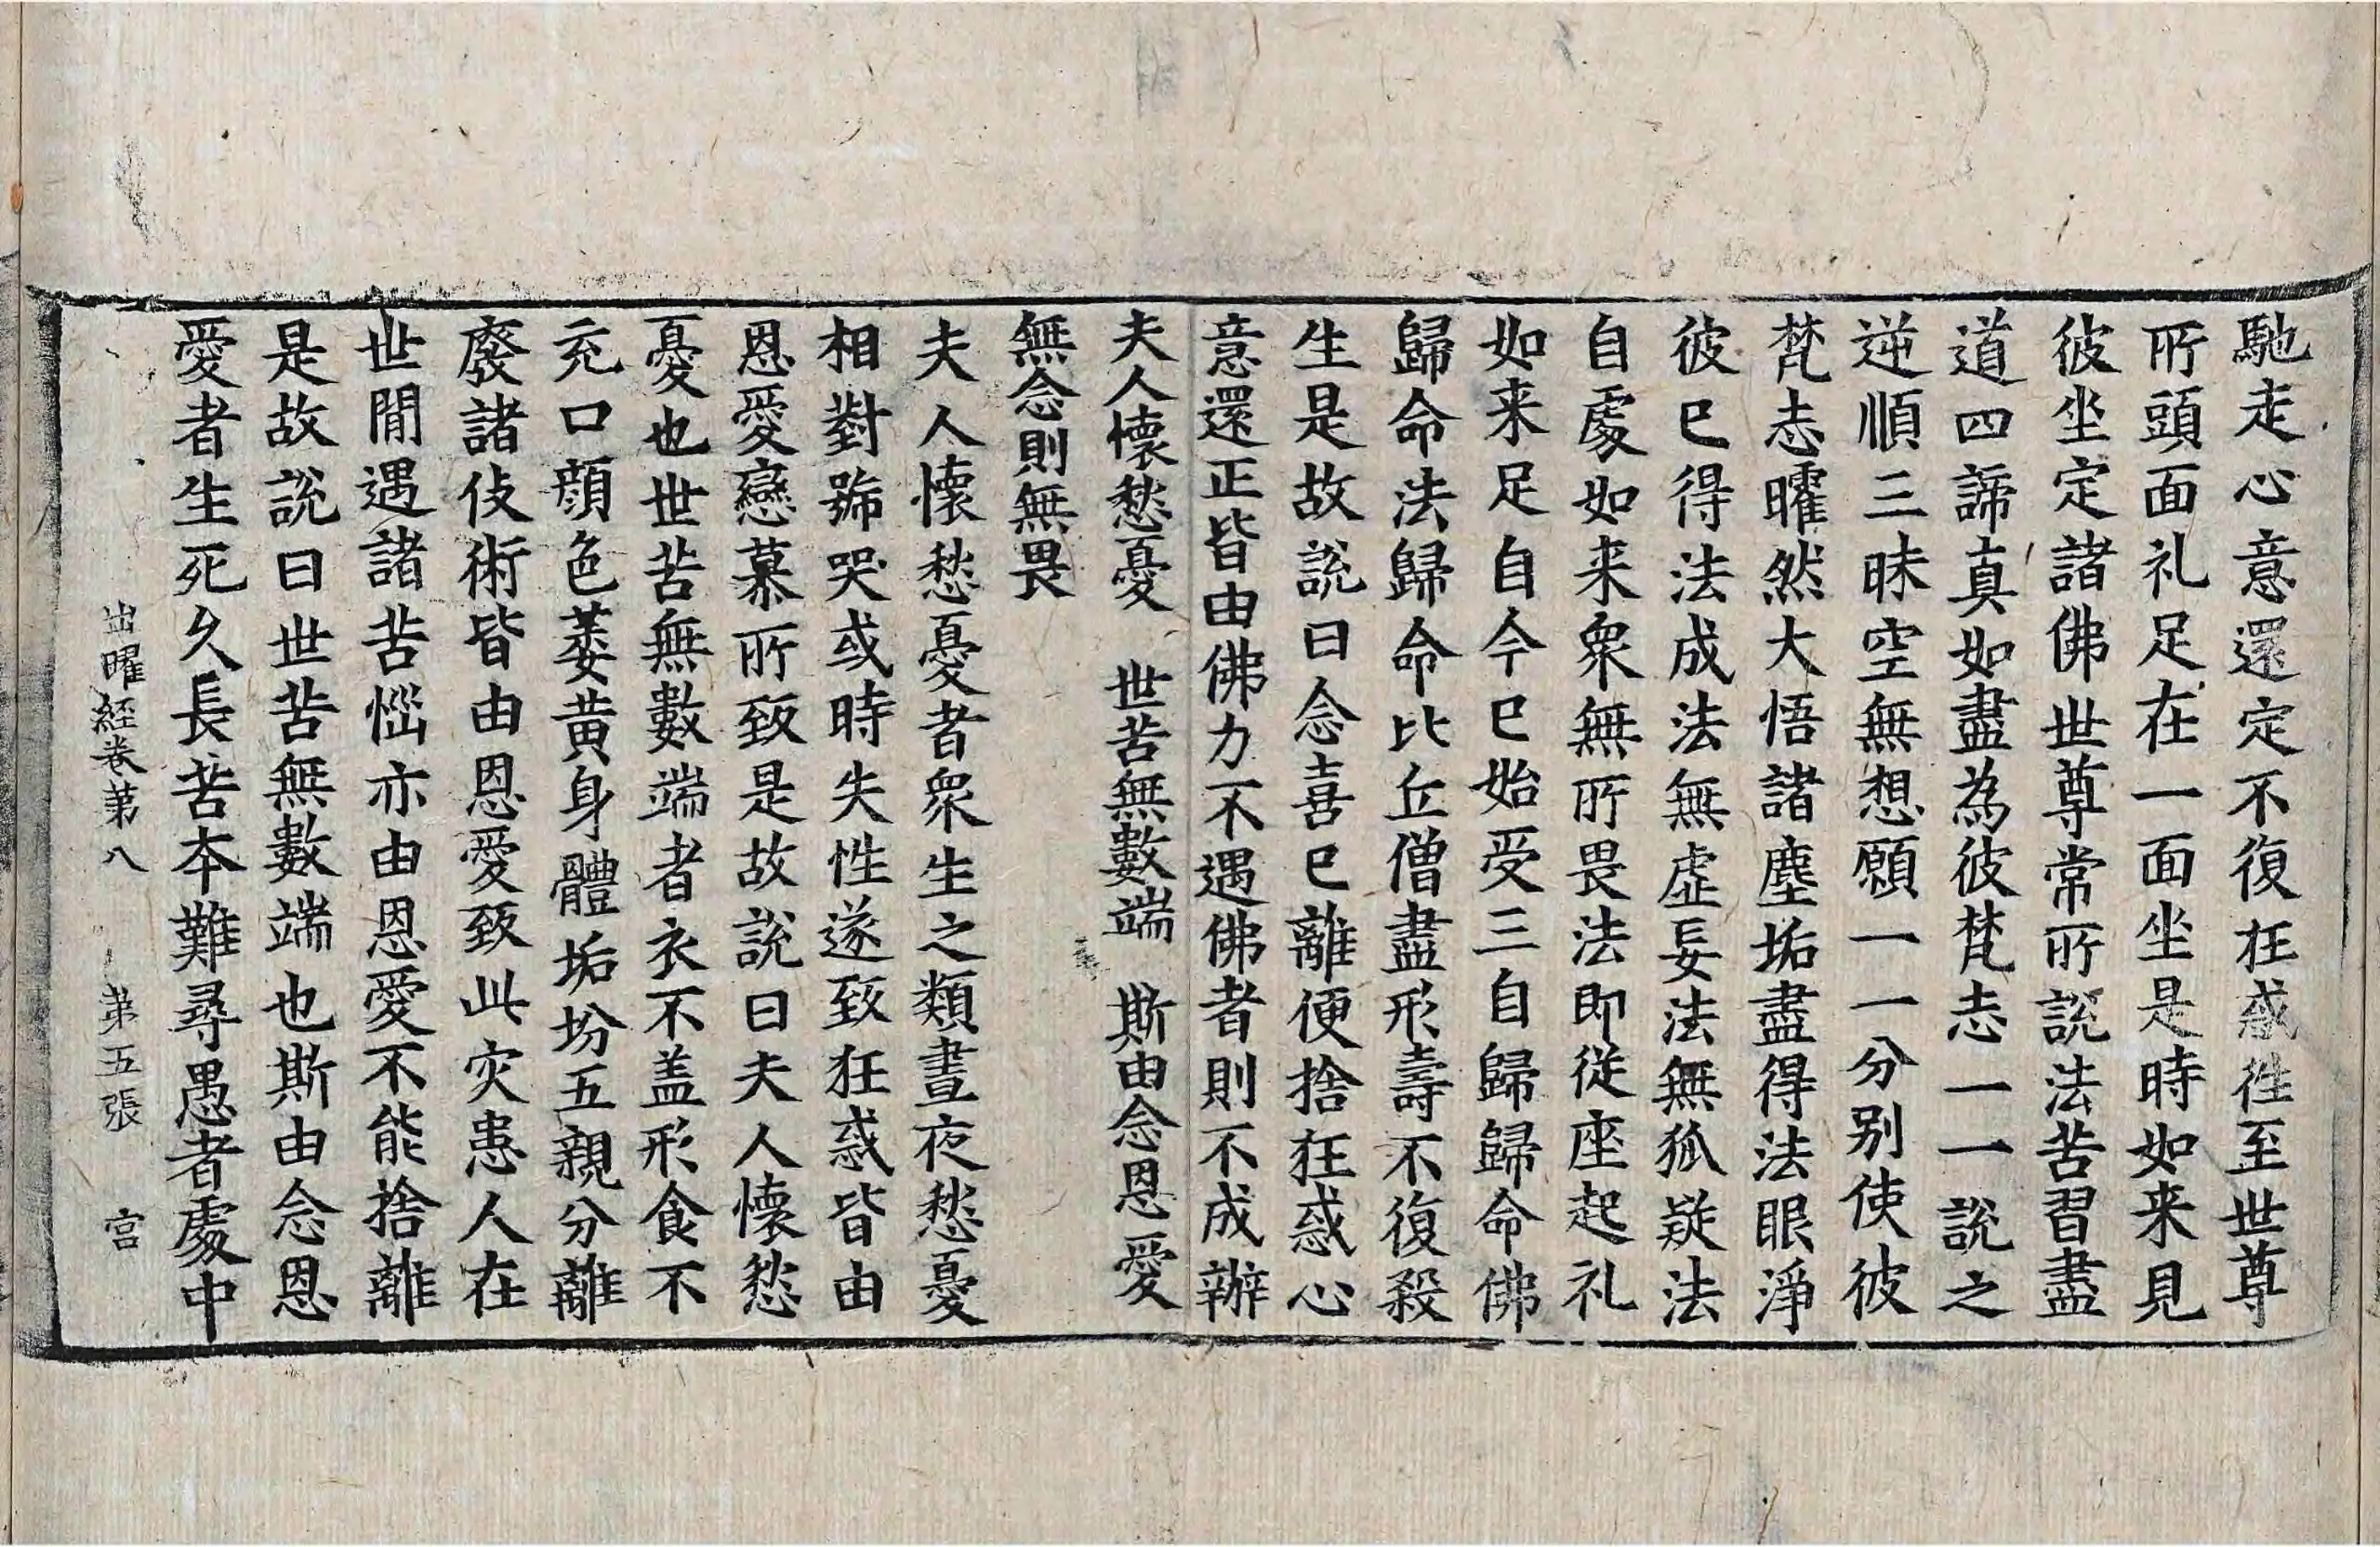 馳走心意還定不復狂惑徃至世尊
所頭面礼足在一面坐是時如来見
彼坐定諸佛世尊常所說法苦習盡
道四諦真如盡為彼梵志一一說之
逆順三昧空無想願一一分別使彼
梵志曜然大悟諸塵垢盡得法眼淨
彼已得法成法無虛妄法無狐疑法
自處如来衆無所畏法即從座起礼
如来足自今已始受三自歸歸命佛
歸命法歸命比丘僧盡形壽不復殺
生是故說曰念喜已離便捨狂惑心
意還正皆由佛力不遇佛者則不成辦
夫人懷愁憂　世苦無數端　斯由念恩愛
無念則無畏
夫人懷愁憂者衆生之類晝夜愁憂
相對號哭或時失性遂致狂惑皆由
恩愛戀慕所致是故說曰夫人懷愁
憂也世苦無數端者衣不盖形食不
充口顔色萎黄身體垢坋五親分離
廢諸伎術皆由恩愛致此灾患人在
世閒遇諸苦惱亦由恩愛不能捨離
是故說曰世苦無數端也斯由念恩
愛者生死久長苦本難尋愚者處中
出曜経卷第八　第五張　宫